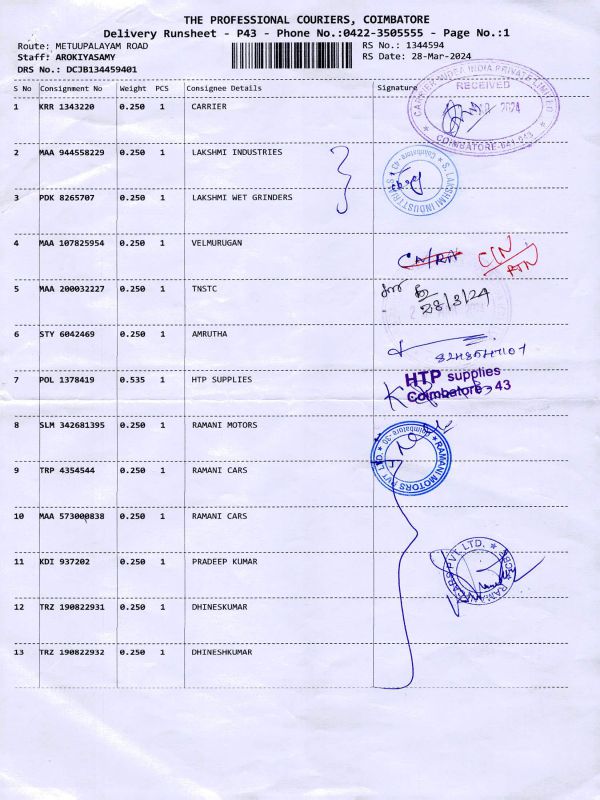 THE PROFESSIONAL COURIERS, COIMBATORE
Delivery Runsheet - P43 - Phone No.:0422-3505555 - Page No.:1
Route: METUUPALAYAM ROAD RS No.: 1344594
Staff: AROKIYASAMY RS Date: 28-Mar-2024
DRS No.: DCJB134459401
S No Consignment No Weight PCS Consignee Details Signature
1 KRR 1343220 0.250 1 CARRIER
CARRIER INDIA PRIVATE LIMITED
RECEIVED
2024
COIMBATORE-641 043
2 MAA 944558229 0.250 1 LAKSHMI INDUSTRIES
S. LAKSHMI INDUSTRIES
Coimbatore - 43
3 PDK 8265707 0.250 1 LAKSHMI WET GRINDERS
4 MAA 107825954 0.250 1 VELMURUGAN
5 MAA 200032227 0.250 1 TNSTC
28/3/24
6 STY 6042469 0.250 1 AMRUTHA
7 POL 1378419 0.535 1 HTP SUPPLIES
HTP supplies
Coimbatore - 43
8 SLM 342681395 0.250 1 RAMANI MOTORS
RAMANI MOTORS PVT LTD.
Coimbatore-30
9 TRP 4354544 0.250 1 RAMANI CARS
10 MAA 573000838 0.250 1 RAMANI CARS
11 KDI 937202 0.250 1 PRADEEP KUMAR
RAMANI CARS PVT. LTD.
12 TRZ 190822931 0.250 1 DHINESKUMAR
13 TRZ 190822932 0.250 1 DHINESHKUMAR